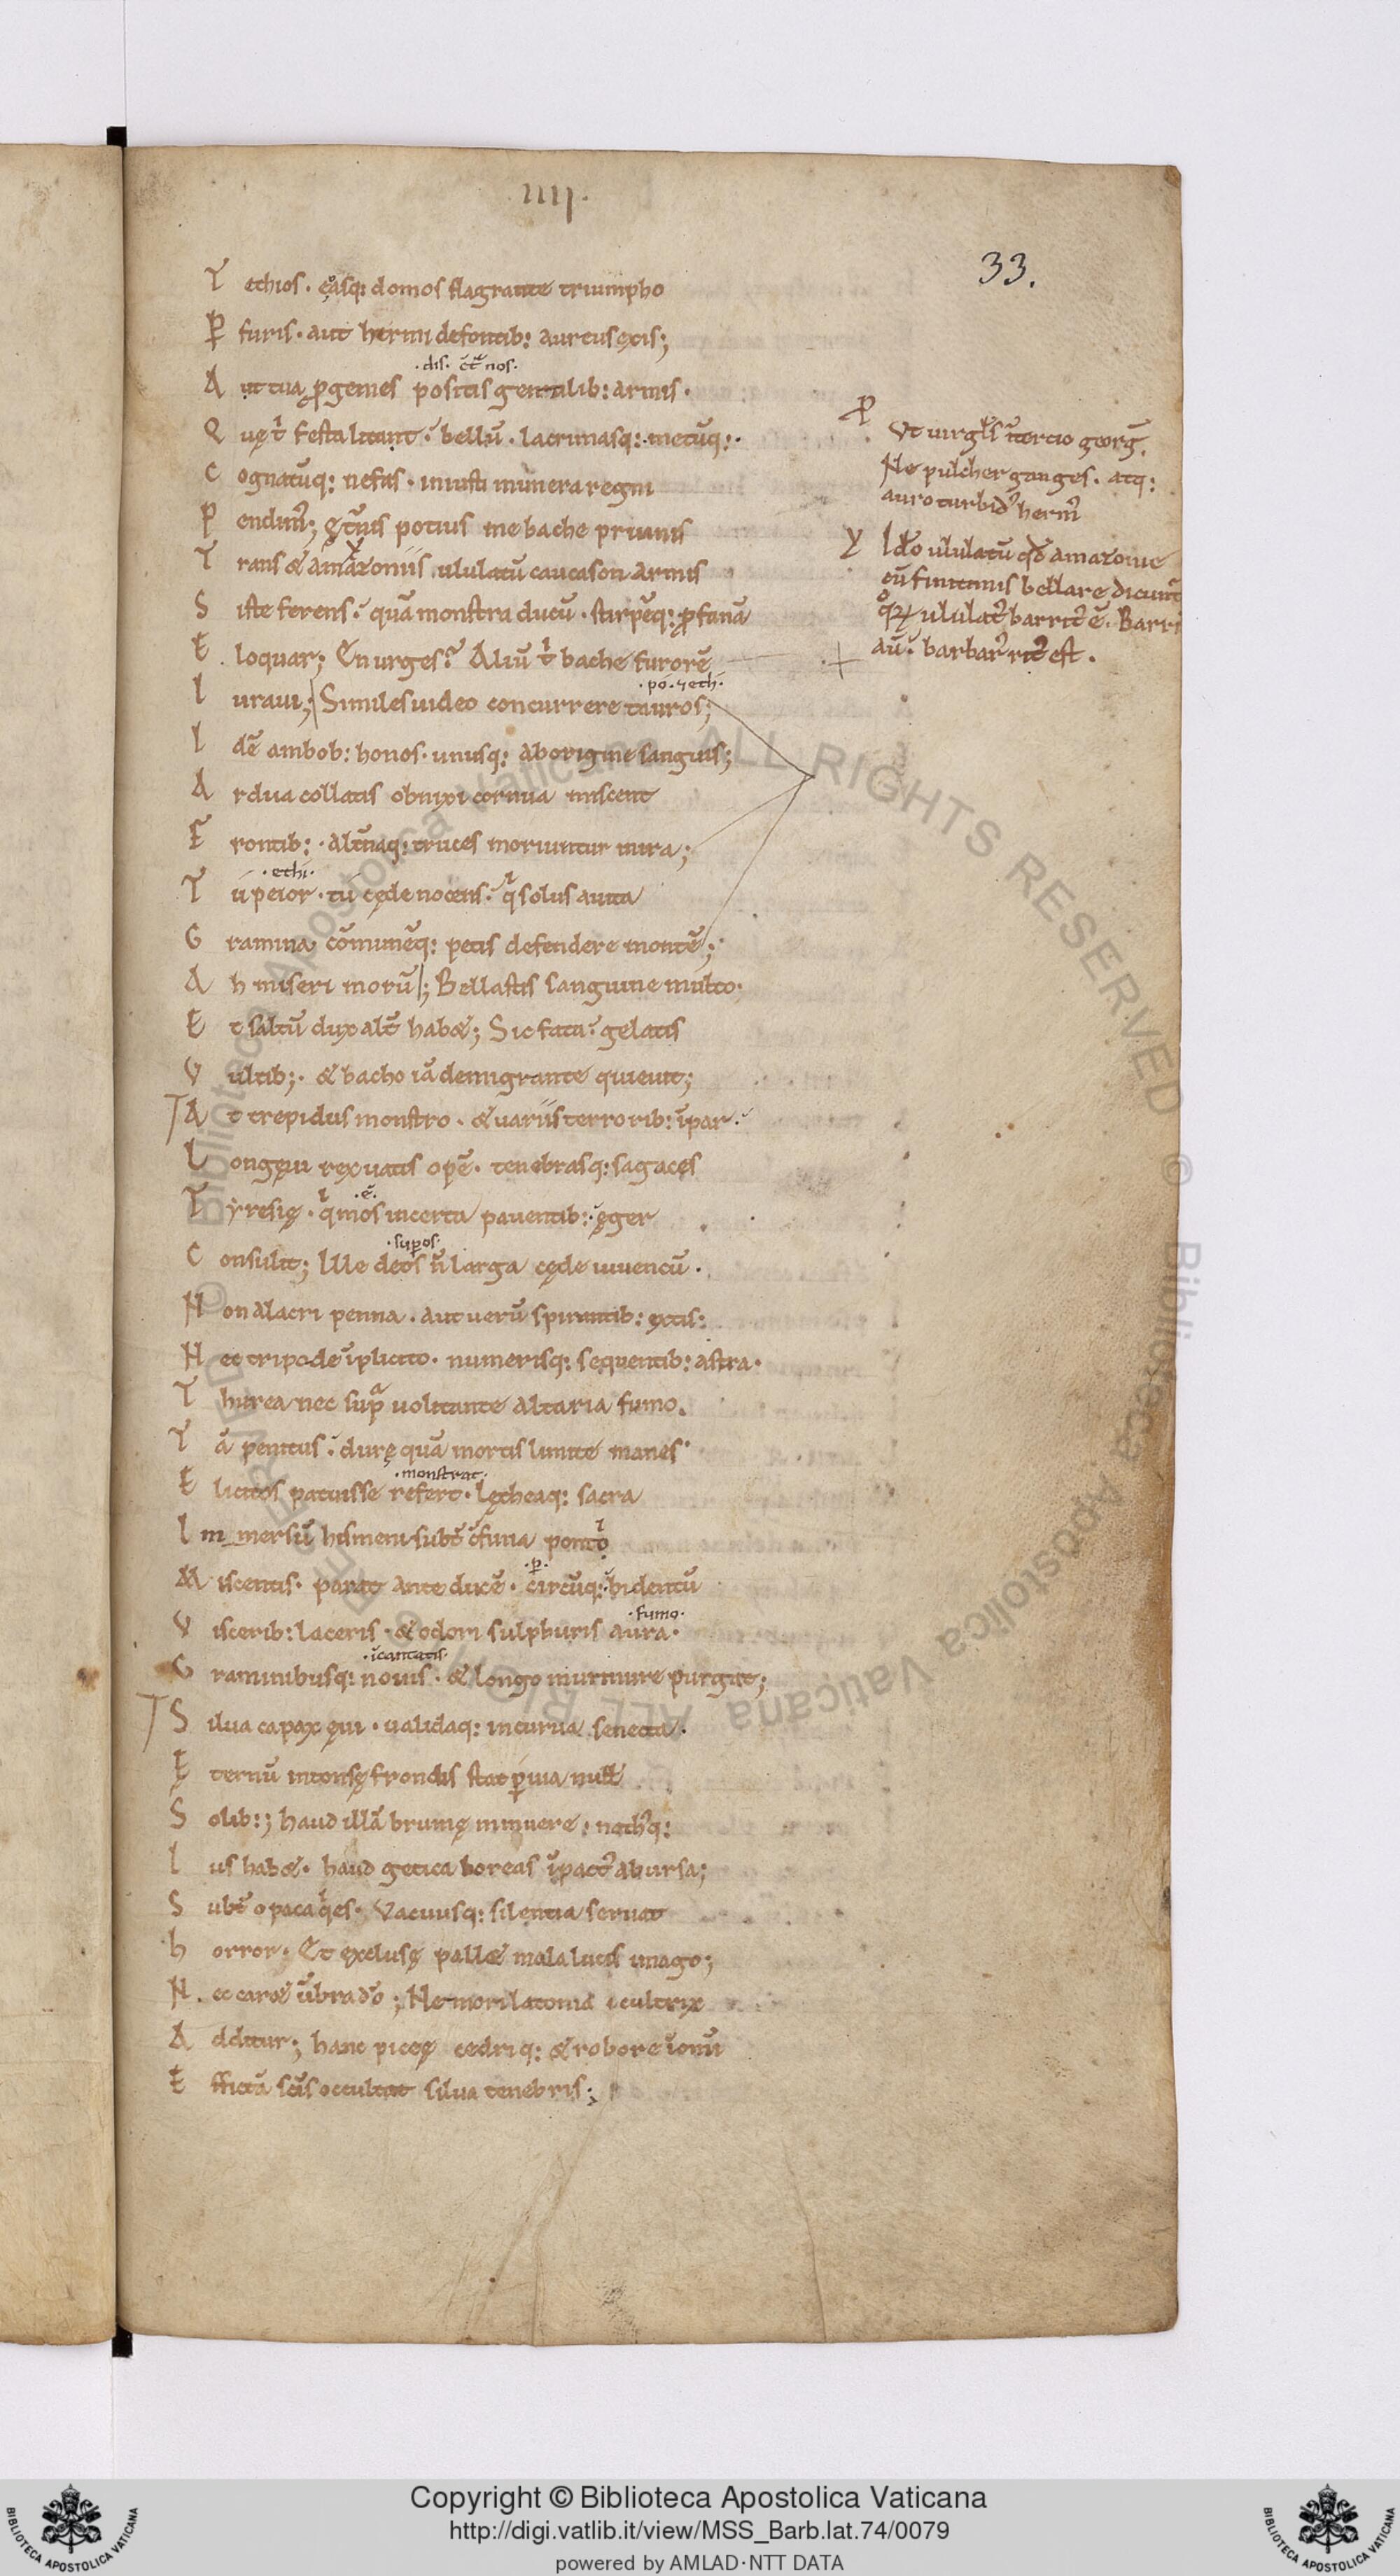 IIII.
33.
T ethios. easq: domos flagrante triumpho
P furis. aut hermi defontib: aureus exis;
.dis. ct̄ nos.
A ut tua p̱genies positis gentilib: armis.
Q uę t̄ festa litant? bellū. lacrimasq: metūq:.
C ognatūq: nefas. iniusti munera regni
P endim᷒; ęt̄nis potius me bache pruinis
T rans & amazoniis ululatū caucason armis
S iste ferens? quā monstra ducū. stirpēq: p̱fanā
E loquar; En urges? Aliū t̄ bache furorē
.po. ⁊ eth.
I uraui; Similes uideo concurrere tauros;
I dē ambob: honos. unusq: aborigine sanguis;
A rdua collatis obnixi cornua miscent
F rontib: . alt̄naq: truces moriuntur inira;
.ethi.
T ú peior. tú cęde nocens. q̄ solus auita
G ramina cōmunēq: petis defendere montē;
A h miseri morū; Bellastis sanguine multo.
E t saltū dux alt̄ hab&; Sic fata? gelatis
V ultib;. & bacho iā demigrante quieuit;
A t trepidus monstro. & uariis terrorib: īpar.
L ongęui rex uatis opē. tenebrasq: sagaces
.ē.
T yresię. q̄ mos incerta pauentib: ęger
.sup̱os.
C onsulit; Ille deos n̄ larga cęde iuuencū.
N on alacri penna. aut uerū spirantib: extis:
N ec tripode īplicito. numerisq: sequentib: astra.
T hurea nec supᵃ uolitante altaria fumo.
T ā penitus? durę quā mortis limite manes
.monstrat.
E licitos patuisse refert. lętheaq: sacra
I m mersū hismeni subt̄ c̄finia ponto
.p̱.
M iscentis. parat ante ducē. circūq: bidentū
.fumo.
V iscerib: laceris. & odori sulphuris aura.
.īcantatis.
G raminibusq: nouis. & longo murmure purgat;
S ilua capax ęui. ualidaq: incurua senecta.
Ę ternū intonsę frondis stat p̱uia null̄
S olib:; haud illā brumę minuere. noth᷒q:
I us hab&. haud getica boreas īpact᷒ abursa;
S ubt̄ opaca q̄es. Vacuusq: silentia seruat
h orror. Et exclusę pall& mala lucis imago;
N ec car& ūbra dō; Nemori latonia cultrix
A dditur; hanc piceę cedriq: & robore īomī
E ffictā sc̄is occultat silua tenebris;
Vt uirgłs ītertio georḡ.
Ne pulcher ganges. atq:
auro turbid᷒ herm᷒
Y Idō ululatū qđ amazonie
cū finitimis bellare dicunt᷒
ululat᷒ barrit᷒ ē. Barri
aū. barbar᷒ rit᷒ est.
Copyright © Biblioteca Apostolica Vaticana
http://digi.vatlib.it/view/MSS_Barb.lat.74/0079
powered by AMLAD·NTT DATA
BIBLIOTECA APOSTOLICA VATICANA
BIBLIOTECA APOSTOLICA VATICANA
© Biblioteca Apostolica Vaticana ALL RIGHTS RESERVED © Biblioteca Apostolica Vaticana ALL RIGHTS RESERVED